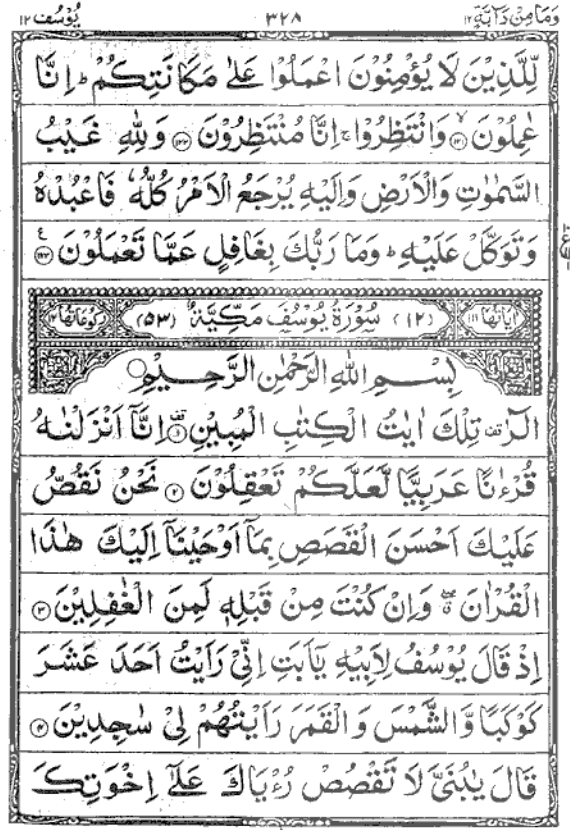 وَمَا مِنْ دَآبَّةٍ ١٢ ٣٢٨ يُوْسُف ١٢
لِّلَّذِيْنَ لَا يُؤْمِنُوْنَ اعْمَلُوْا عَلٰى مَكَانَتِكُمْ ؕ اِنَّا
عٰمِلُوْنَ ﴿١٢١﴾ۙ وَانْتَظِرُوْا ۚ اِنَّا مُنْتَظِرُوْنَ ﴿١٢٢﴾ وَلِلّٰهِ غَيْبُ
السَّمٰوٰتِ وَالْاَرْضِ وَاِلَيْهِ يُرْجَعُ الْاَمْرُ كُلُّهٗ فَاعْبُدْهُ
وَتَوَكَّلْ عَلَيْهِ ؕ وَمَا رَبُّكَ بِغَافِلٍ عَمَّا تَعْمَلُوْنَ ﴿١٢٣﴾ ع
اٰيَاتُهَا ١١١ (١٢) سُوْرَةُ يُوْسُفَ مَكِّيَّةٌ (٥٣) رُكُوْعَاتُهَا ١٢
بِسْمِ اللّٰهِ الرَّحْمٰنِ الرَّحِيْمِ
الٓرٰ ۟ تِلْكَ اٰيٰتُ الْكِتٰبِ الْمُبِيْنِ ﴿١﴾ اِنَّاۤ اَنْزَلْنٰهُ
قُرْءٰنًا عَرَبِيًّا لَّعَلَّكُمْ تَعْقِلُوْنَ ﴿٢﴾ نَحْنُ نَقُصُّ
عَلَيْكَ اَحْسَنَ الْقَصَصِ بِمَاۤ اَوْحَيْنَاۤ اِلَيْكَ هٰذَا
الْقُرْاٰنَ ۖ وَاِنْ كُنْتَ مِنْ قَبْلِهٖ لَمِنَ الْغٰفِلِيْنَ ﴿٣﴾
اِذْ قَالَ يُوْسُفُ لِاَبِيْهِ يٰۤاَبَتِ اِنِّيْ رَاَيْتُ اَحَدَ عَشَرَ
كَوْكَبًا وَّالشَّمْسَ وَالْقَمَرَ رَاَيْتُهُمْ لِيْ سٰجِدِيْنَ ﴿٤﴾
قَالَ يٰبُنَيَّ لَا تَقْصُصْ رُءْيَاكَ عَلٰۤى اِخْوَتِكَ